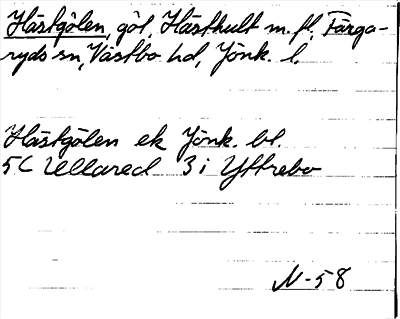 Hästgölen, göl, Hästhult m. fl., Färga-
ryds sn, Västbo hd, Jönk. l.
Hästgölen ek Jönk. bl.
5C Ullared 3 i Yttrebo
N-58